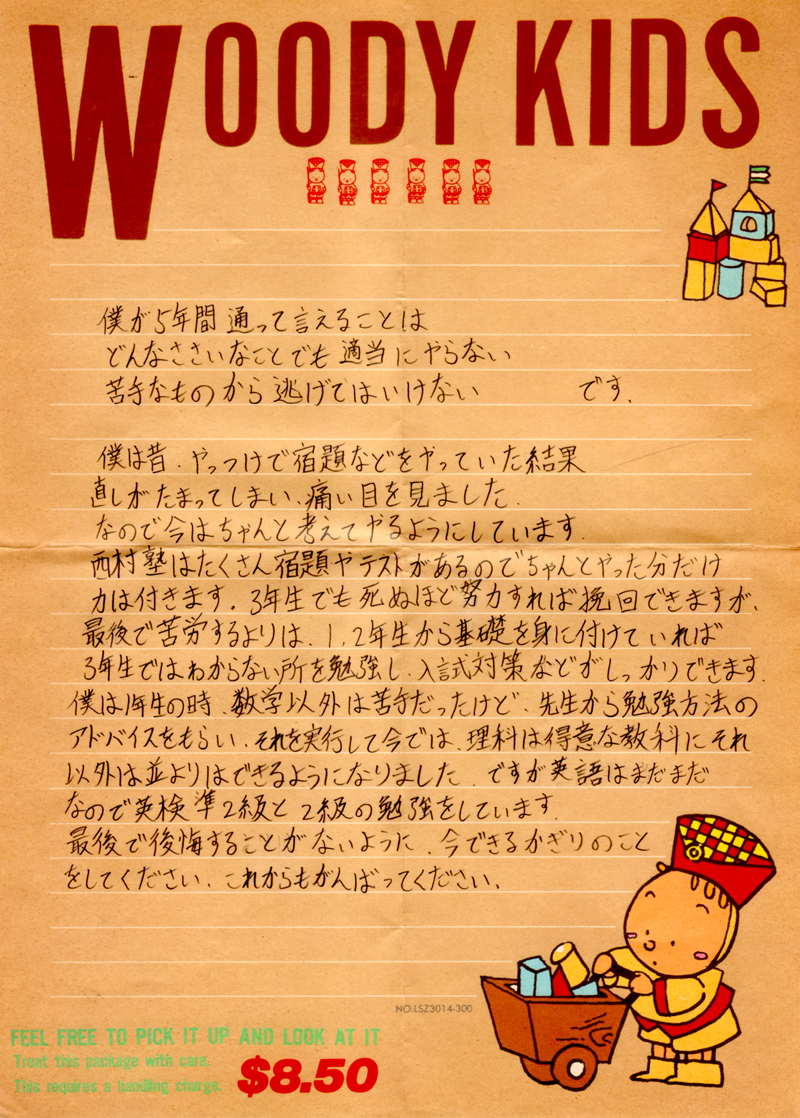 WOODY KIDS
僕が5年間通って言えることは
どんなささいなことでも適当にやらない
苦手なものから逃げてはいけない です.
僕は昔.やっつけで宿題などをやっていた結果
直しがたまってしまい、痛い目を見ました.
なので今はちゃんと考えてやるようにしています.
西村塾はたくさん宿題やテストがあるのでちゃんとやった分だけ
力は付きます.3年生でも死ぬほど努力すれば挽回できますが、
最後で苦労するよりは、1、2年生から基礎を身に付けていれば
3年生ではわからない所を勉強し、入試対策などがしっかりできます.
僕は1年生の時、数学以外は苦手だったけど、先生から勉強方法の
アドバイスをもらい、それを実行して今では、理科は得意な教科にそれ
以外は並よりはできるようになりました.ですが英語はまだまだ
なので英検準2級と2級の勉強をしています.
最後で後悔することがないように、今できるかぎりのこと
をしてください.これからもがんばってください.
NO.LSZ3014-300
FEEL FREE TO PICK IT UP AND LOOK AT IT
Treat this package with care.
This requires a handling charge.
$8.50